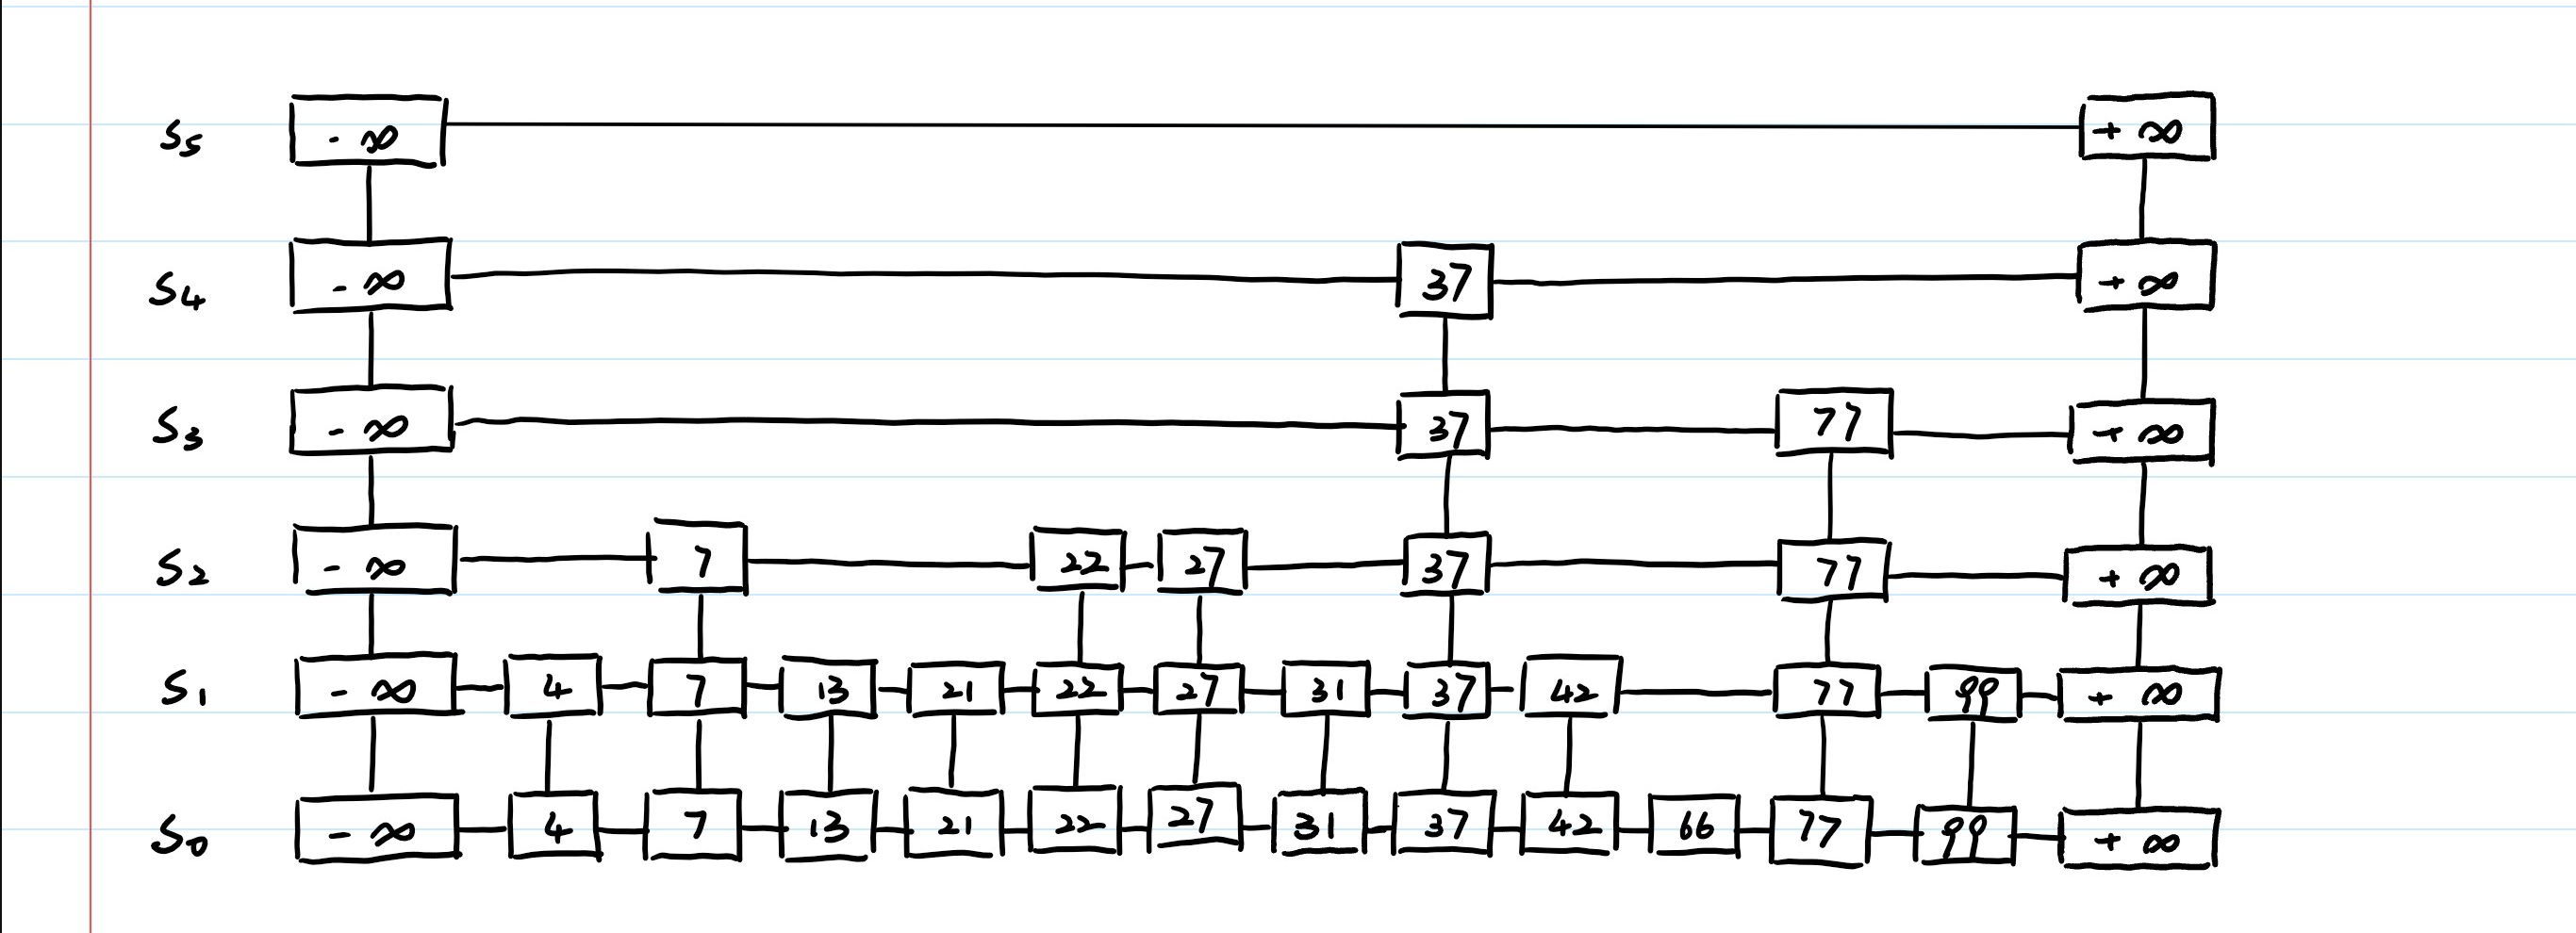 S5 - ∞ + ∞
S4 - ∞ 37 + ∞
S3 - ∞ 37 77 + ∞
S2 - ∞ 7 22 27 37 77 + ∞
S1 - ∞ 4 7 13 21 22 27 31 37 42 77 99 + ∞
S0 - ∞ 4 7 13 21 22 27 31 37 42 66 77 99 + ∞